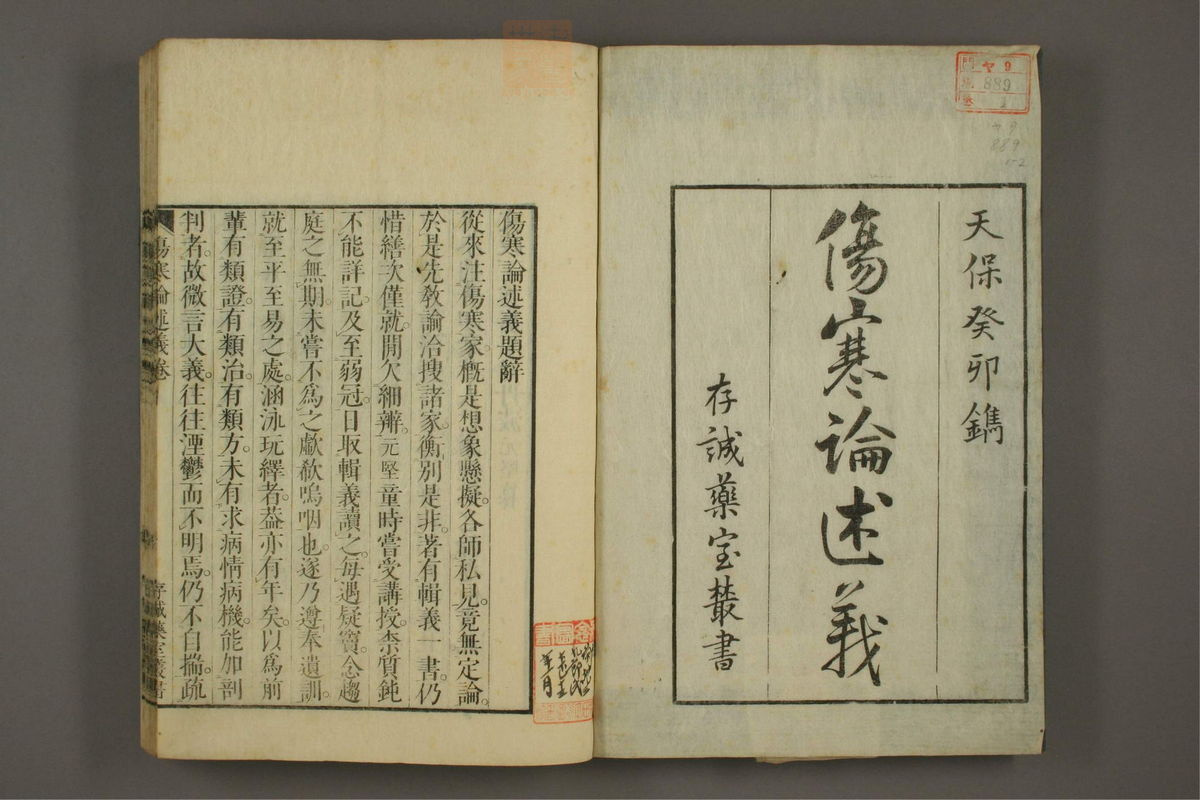 天保癸卯鐫
傷寒論述義
存誠藥室叢書
ヤ9
889
1
傷寒論述義題辭
從來注傷寒家槪是想象懸擬各師私見。竟無定論。
於是先敎諭洽搜諸家。衡別是非。著有輯義一書。仍
惜繕次僅就。開欠細辨。元堅童時嘗受講授。柰質鈍
不能詳記。及至弱冠。日取輯義讀之。每遇疑竇。念趨
庭之無期。未嘗不爲之歔欷嗚咽也。遂乃遵奉遺訓。
就至平至易之處。涵泳玩繹者。葢亦有年矣。以爲前
輩有類證。有類治。有類方。未有求病情病機。能加剖
判者。故微言大義。往往湮鬱而不明焉。仍不自揣疏
傷寒論述義卷
存誠藥室叢書